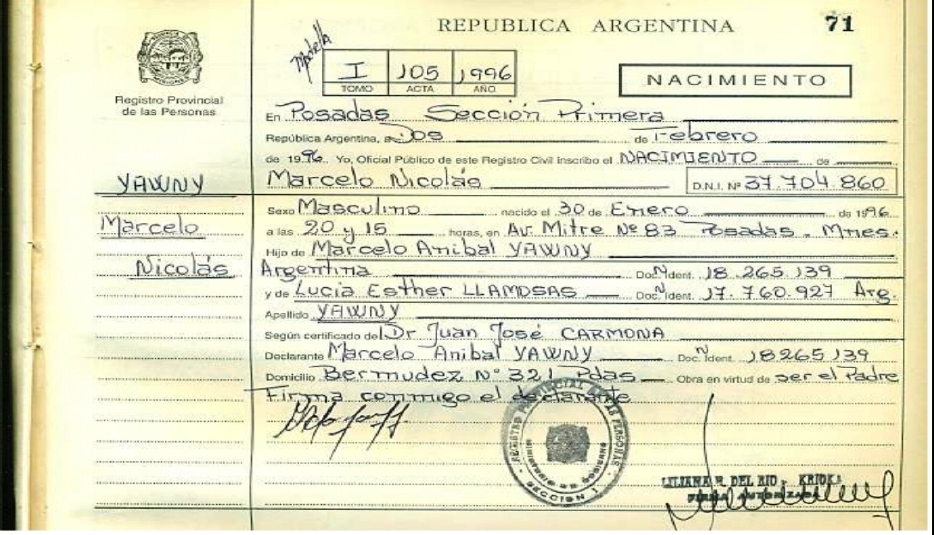 REPUBLICA ARGENTINA 71
I 105 1996
TOMO ACTA AÑO
NACIMIENTO
Registro Provincial
de las Personas
En Posadas Sección Primera
República Argentina, a Dos de Febrero
de 1996. Yo, Oficial Público de este Registro Civil inscribo el NACIMIENTO de
Marcelo Nicolás D.N.I. Nº 37.704.860
YAWNY
Marcelo
Nicolás
Sexo Masculino nacido el 30 de Enero de 1996
a las 20 y 15 horas, en Av. Mitre Nº 83 Posadas. Mnes.
Hijo de Marcelo Anibal YAWNY
Argentina Doc. Ident. 18.265.139
y de Lucia Esther LLAMOSAS Doc. Ident. 17.760.927 Arg.
Apellido YAWNY
Según certificado del Dr Juan José CARMONA
Declarante Marcelo Anibal YAWNY Doc. Ident. 18265139
Domicilio Bermudez N° 321 Pdas Obra en virtud de ser el Padre
Firma conmigo el declarante
REGISTRO PROVINCIAL DE LAS PERSONAS
MINISTERIO DE GOBIERNO
SECCION 1
DEL
FIRMA AUTORIZADA